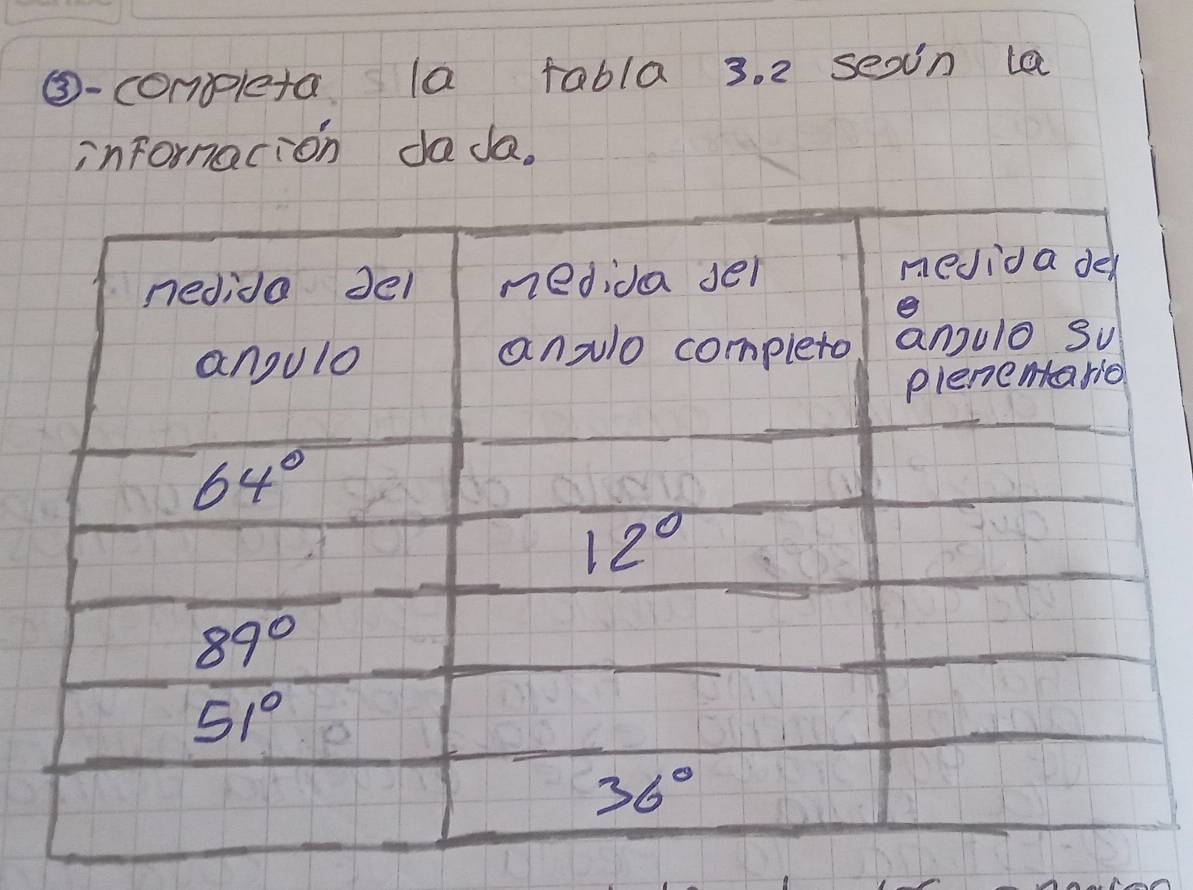 ③-completa la tabla 3.2 según la
información dada.
medida del
angulo
medida del
angulo completo
medida del
angulo su
plementario
64°
12°
89°
51°
36°